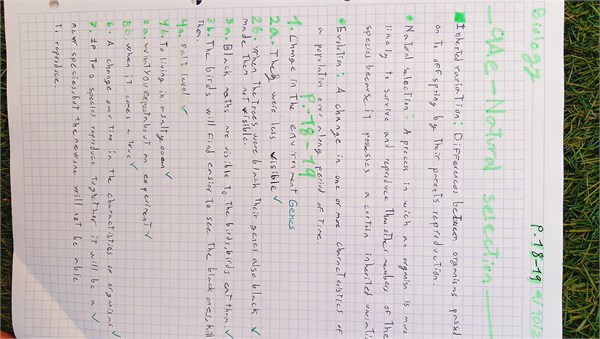 Biology
P.18-19
One - Natural selection
Inherited variation: Differences between organisms passed
on to offspring by their parents reproduction
Natural selection: A process in wich an organism is more
likely to survive and reproduce than other members of the
species because it possess a certain inherited variati
Evolution: A change in one or more characteristics of
a population over a long period of time
P.18-19
1. Change in the envirment Genes
2a. They were less visible ✓
2b. When the trees were black their genes also black ✓
made them not visible.
3a. Black moths are visible to the birds, birds eat them. ✓
3b. The birds will find easier to see the black ones, kill
them.
4a. Salt level ✓
4b. To living in a salty ocean ✓
5a. What you expect about an experiment ✓
5b. When it comes a true ✓
6. A change over time in the characteristics or organisms ✓
7. If two species reproduce together it will be a ✓
new species, but the newone will not be able
to reproduce